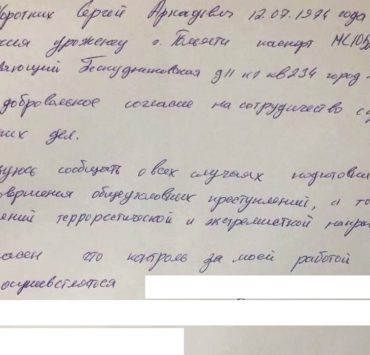 Коротких Сергей Аркадьевич 12.07.1974 года
уроженец г. Тольятти паспорт МС
Бескудниковская д11 к1 кв234 город
добровольное согласие на сотрудничество с
них дел.
уюсь сообщать о всех случаях подготовки
совершения общеуголовных преступлений, а то
лений террорестической и экстремисткой напра
ласен что контроль за моей работой
осуществляться